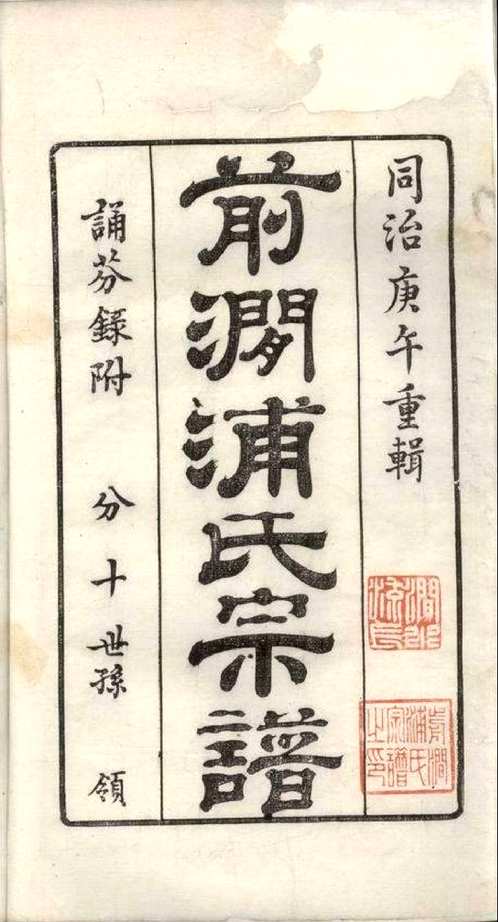 同治庚午重輯
前澗浦氏宗譜
誦芬錄附　分十世孫　領
前澗浦氏宗譜之印